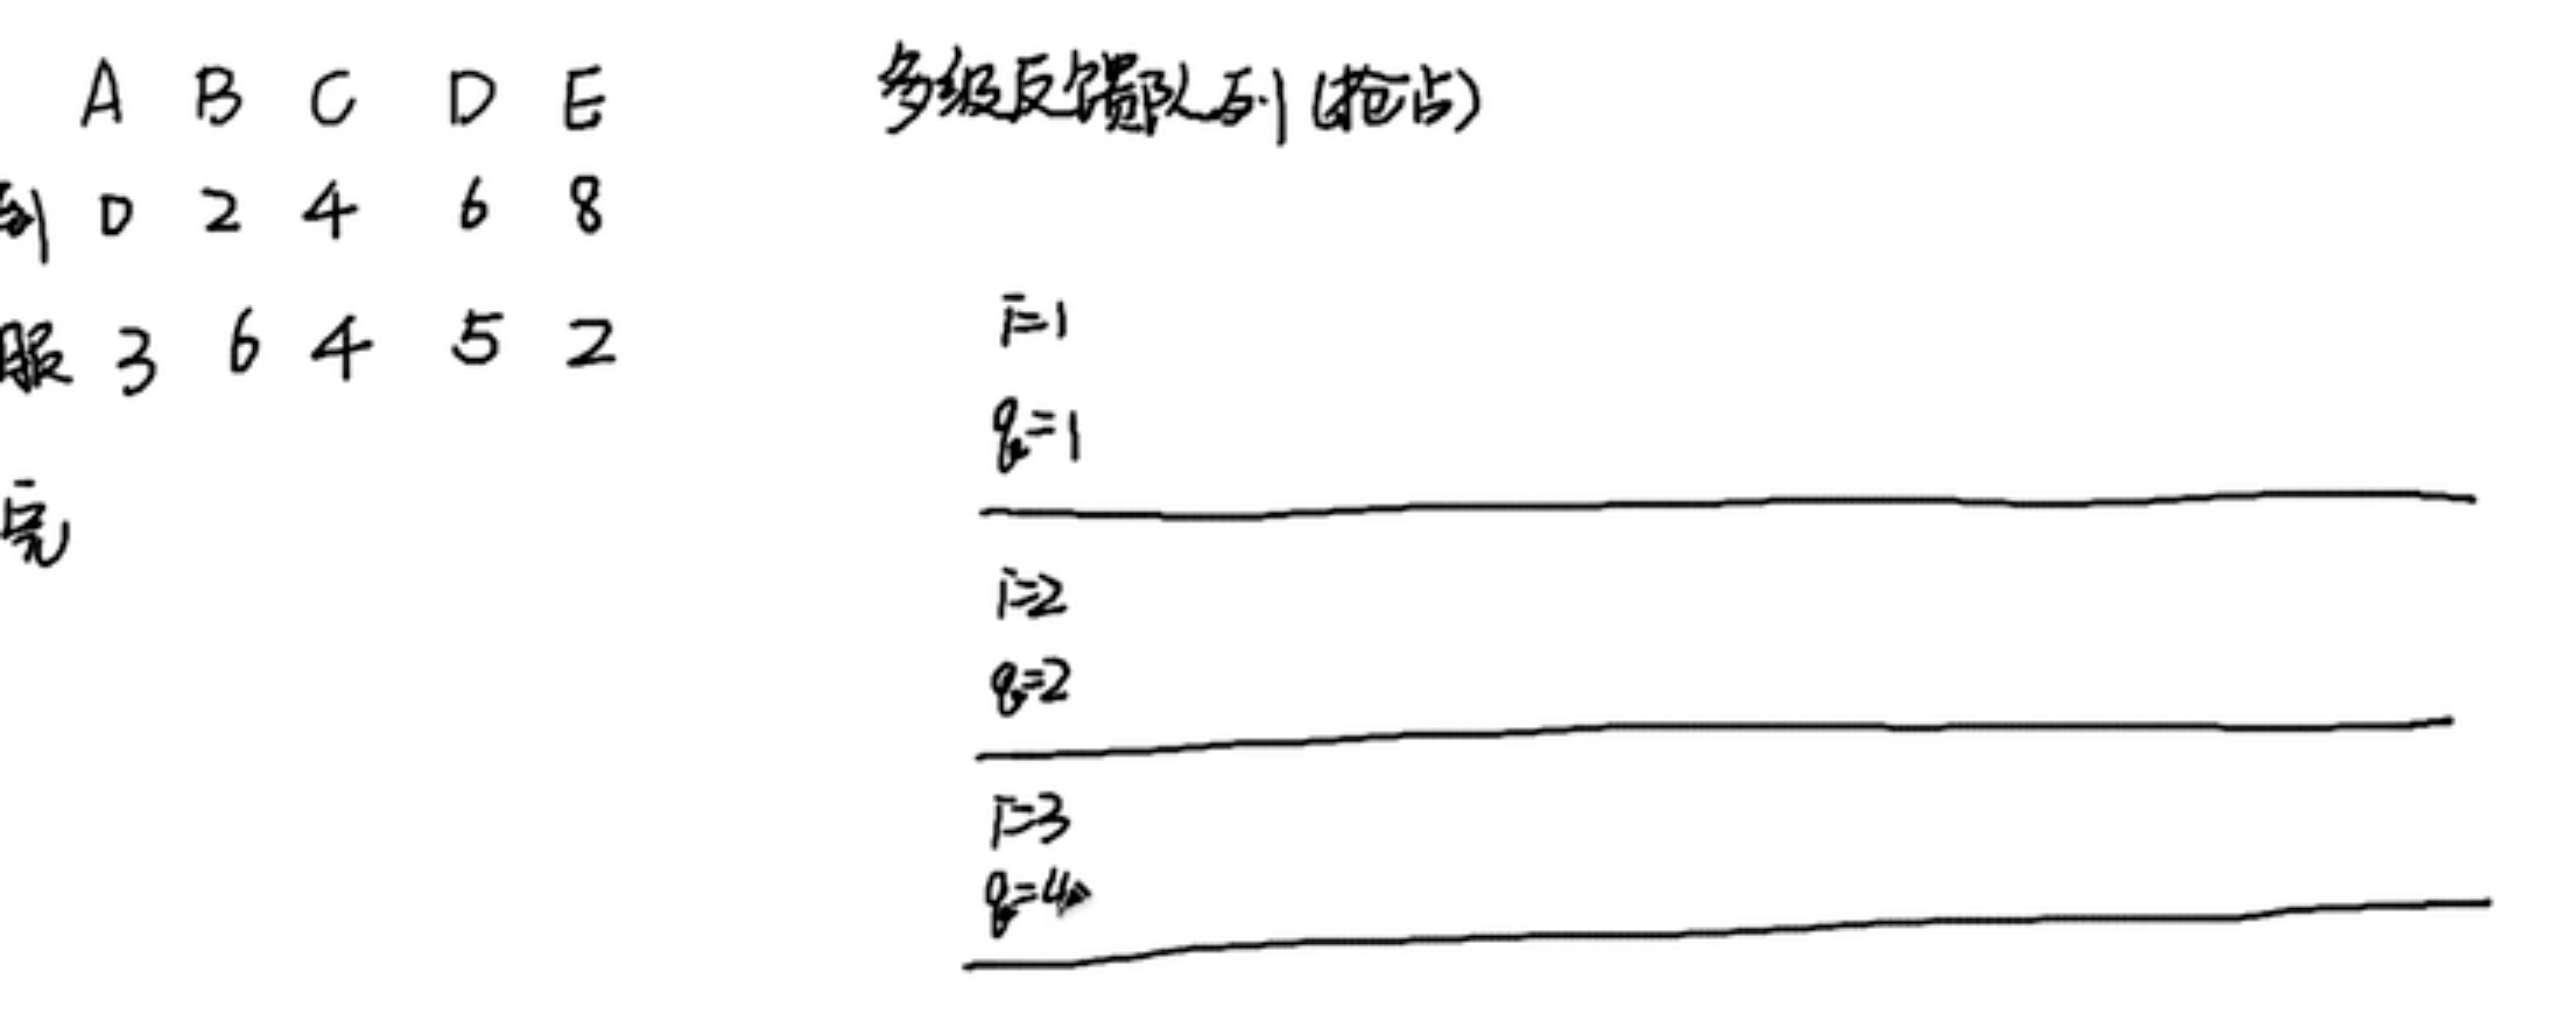 A B C D E
到 0 2 4 6 8
服 3 6 4 5 2
完
多级反馈队列(抢占)
i=1
q=1
i=2
q=2
i=3
q=4